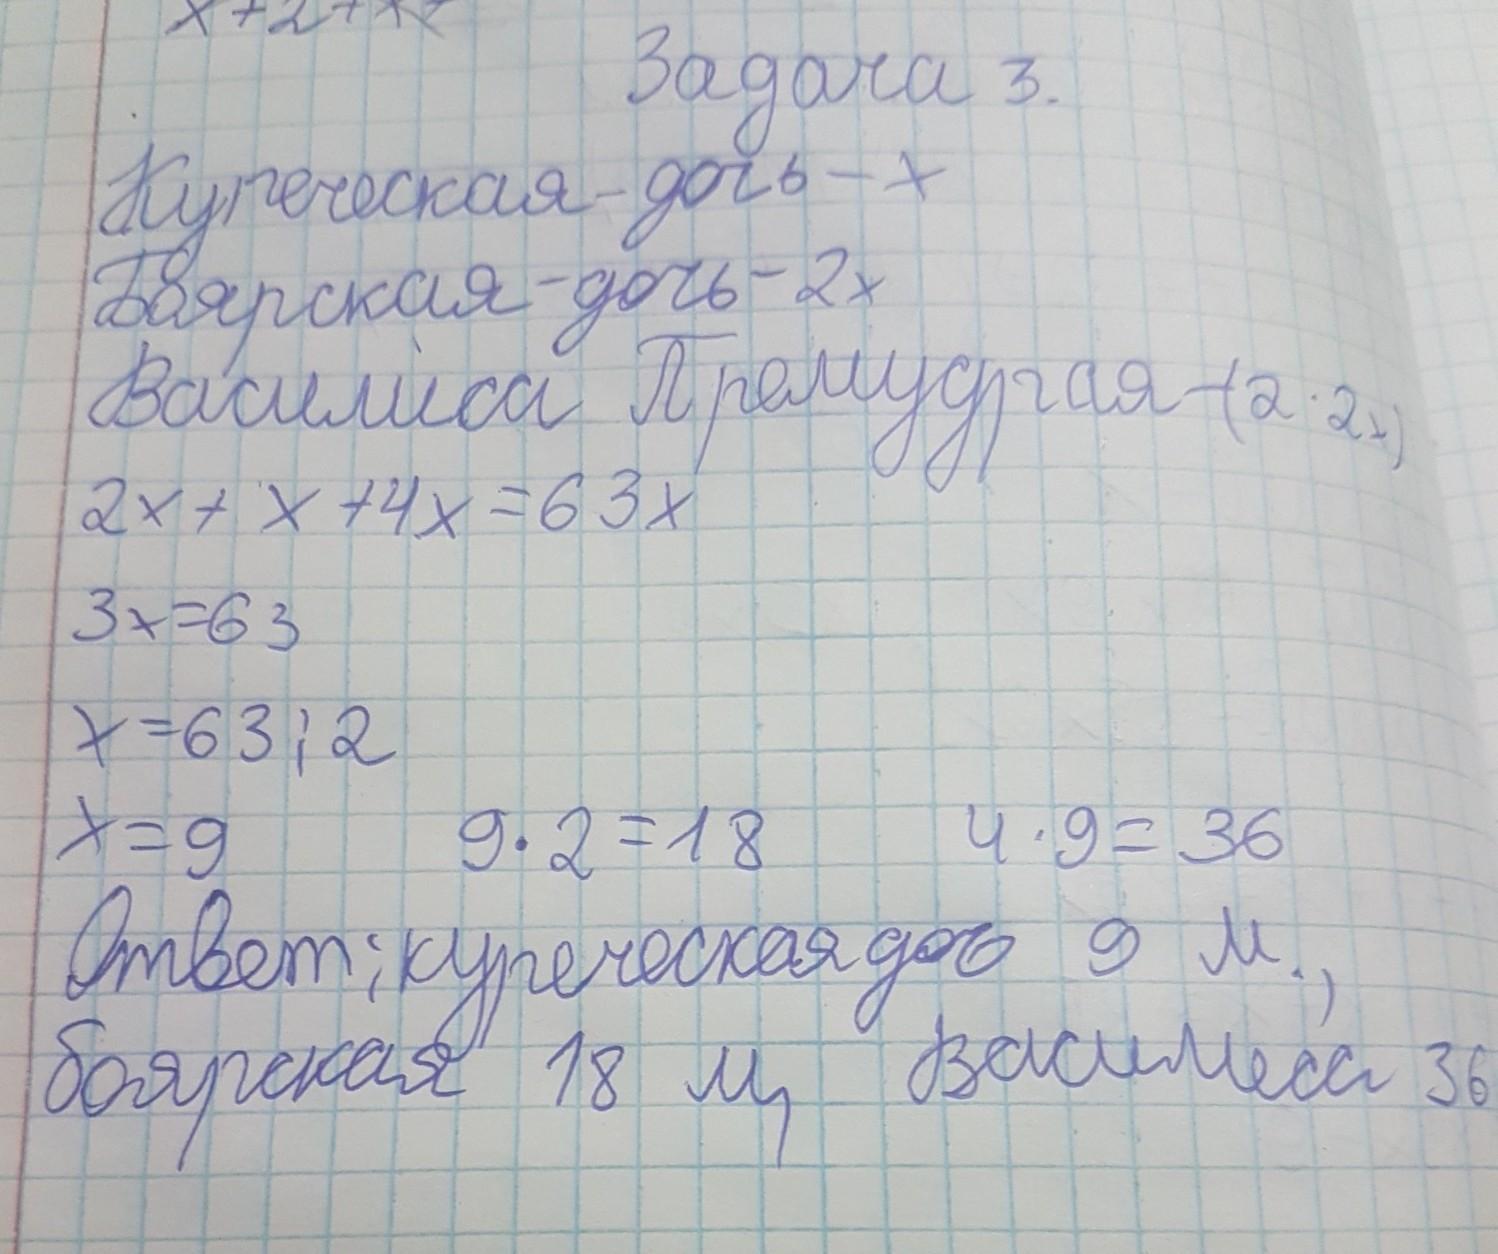 x+2+x
Задача 3.
Купеческая-дочь-x
Боярская-дочь-2x
Василиса Премудрая-(2·2x)
2x+x+4x=63x
3x=63
x=63:2
x=9 9·2=18 4·9=36
Ответ: купеческая доч 9 м.,
боярская 18 м, Василиса 36